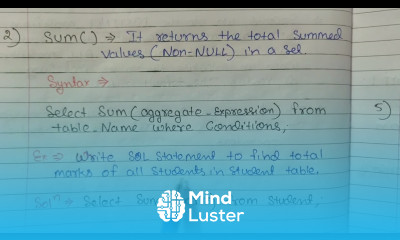 2) Sum() ⇒ It returns the total summed
values (Non-NULL) in a set.
Syntax ⇒
Select Sum(aggregate_Expression) from
5)
table_Name where Conditions;
Ex ⇒ Write SQL Statement to find total
marks of all Students in Student table.
Solⁿ ⇒ Select Sum from Student;
Mind
Luster